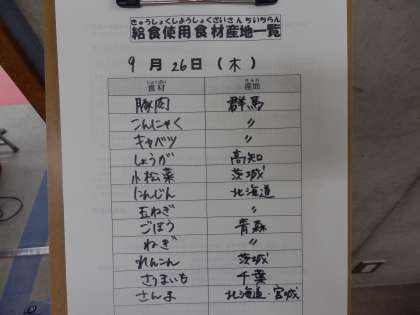 きゅうしょくしようしょくざいさんちいちらん
給食使用食材産地一覧
9月26日(木)
食材 産地
豚肉 群馬
こんにゃく 〃
キャベツ 〃
しょうが 高知
小松菜 茨城
にんじん 北海道
玉ねぎ 〃
ごぼう 青森
ねぎ 〃
れんこん 茨城
さつまいも 千葉
さんま 北海道・宮城